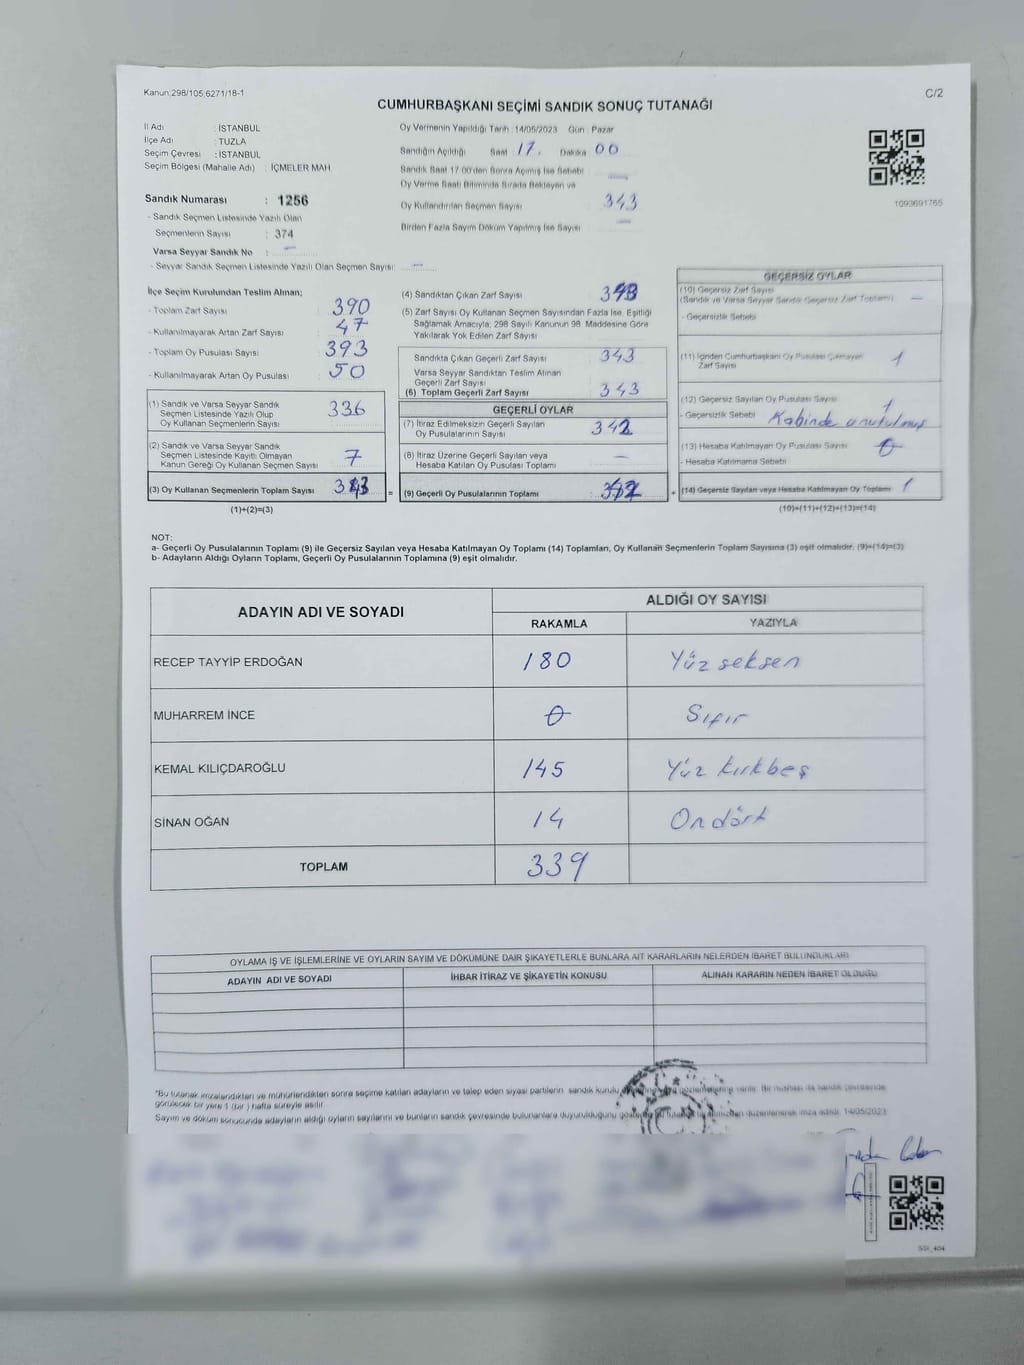 Kanun:298/105,6271/18-1
C/2
CUMHURBAŞKANI SEÇİMİ SANDIK SONUÇ TUTANAĞI
İl Adı : İSTANBUL
İlçe Adı : TUZLA
Seçim Çevresi : İSTANBUL
Seçim Bölgesi (Mahalle Adı) : İÇMELER MAH
Sandık Numarası : 1256
- Sandık Seçmen Listesinde Yazılı Olan
Seçmenlerin Sayısı : 374
Varsa Seyyar Sandık No : —
- Seyyar Sandık Seçmen Listesinde Yazılı Olan Seçmen Sayısı: —
Oy Vermenin Yapıldığı Tarih :14/05/2023 Gün Pazar
Sandığın Açıldığı Saat 17. Dakika 00
Sandık Saat 17:00'den Sonra Açılmış İse Sebebi —
Oy Verme Saati Bitiminde Sırada Bekleyen ve
Oy Kullandırılan Seçmen Sayısı 343
Birden Fazla Sayım Döküm Yapılmış İse Sayısı —
1093691765
İlçe Seçim Kurulundan Teslim Alınan;
- Toplam Zarf Sayısı 390
- Kullanılmayarak Artan Zarf Sayısı : 47
- Toplam Oy Pusulası Sayısı : 393
- Kullanılmayarak Artan Oy Pusulası : 50
(1) Sandık ve Varsa Seyyar Sandık
Seçmen Listesinde Yazılı Olup
Oy Kullanan Seçmenlerin Sayısı 336
(2) Sandık ve Varsa Seyyar Sandık
Seçmen Listesinde Kayıtlı Olmayan
Kanun Gereği Oy Kullanan Seçmen Sayısı 7
(3) Oy Kullanan Seçmenlerin Toplam Sayısı 343 =
(1)+(2)=(3)
(4) Sandıktan Çıkan Zarf Sayısı 343
(5) Zarf Sayısı Oy Kullanan Seçmen Sayısından Fazla İse, Eşitliği
Sağlamak Amacıyla; 298 Sayılı Kanunun 98. Maddesine Göre
Yakılarak Yok Edilen Zarf Sayısı
Sandıkta Çıkan Geçerli Zarf Sayısı 343
Varsa Seyyar Sandıktan Teslim Alınan
Geçerli Zarf Sayısı
(6) Toplam Geçerli Zarf Sayısı 343
GEÇERLİ OYLAR
(7) İtiraz Edilmeksizin Geçerli Sayılan
Oy Pusulalarının Sayısı 342
(8) İtiraz Üzerine Geçerli Sayılan veya
Hesaba Katılan Oy Pusulası Toplamı —
(9) Geçerli Oy Pusulalarının Toplamı 342 +
GEÇERSİZ OYLAR
(10) Geçersiz Zarf Sayısı
(Sandık ve Varsa Seyyar Sandık Geçersiz Zarf Toplamı) —
- Geçersizlik Sebebi
(11) İçinden Cumhurbaşkanı Oy Pusulası Çıkmayan
Zarf Sayısı 1
(12) Geçersiz Sayılan Oy Pusulası Sayısı 1
- Geçersizlik Sebebi Kabinde unutulmuş
(13) Hesaba Katılmayan Oy Pusulası Sayısı 0
- Hesaba Katılmama Sebebi
(14) Geçersiz Sayılan veya Hesaba Katılmayan Oy Toplamı 1
(10)+(11)+(12)+(13)=(14)
NOT:
a- Geçerli Oy Pusulalarının Toplamı (9) ile Geçersiz Sayılan veya Hesaba Katılmayan Oy Toplamı (14) Toplamları, Oy Kullanan Seçmenlerin Toplam Sayısına (3) eşit olmalıdır. (9)+(14)=(3)
b- Adayların Aldığı Oyların Toplamı, Geçerli Oy Pusulalarının Toplamına (9) eşit olmalıdır.
ADAYIN ADI VE SOYADI ALDIĞI OY SAYISI
RAKAMLA YAZIYLA
RECEP TAYYİP ERDOĞAN 180 Yüz seksen
MUHARREM İNCE 0 Sıfır
KEMAL KILIÇDAROĞLU 145 Yüz kırkbeş
SİNAN OĞAN 14 Ondört
TOPLAM 339
OYLAMA İŞ VE İŞLEMLERİNE VE OYLARIN SAYIM VE DÖKÜMÜNE DAİR ŞİKAYETLERLE BUNLARA AİT KARARLARIN NELERDEN İBARET BULUNDUKLARI
ADAYIN ADI VE SOYADI İHBAR İTİRAZ VE ŞİKAYETİN KONUSU ALINAN KARARIN NEDEN İBARET OLDUĞU
*Bu tutanak imzalandıktan ve mühürlendikten sonra seçime katılan adayların ve talep eden siyasi partilerin sandık kurulu verilir. Bir nüshası da sandık çevresinde
görülecek bir yere 1 (bir ) hafta süreyle asılır.
Sayım ve döküm sonucunda adayların aldığı oyların sayılarını ve bunların sandık çevresinde bulunanlara duyurulduğunu tutanak düzenlenerek imza edildi. 14/05/2023